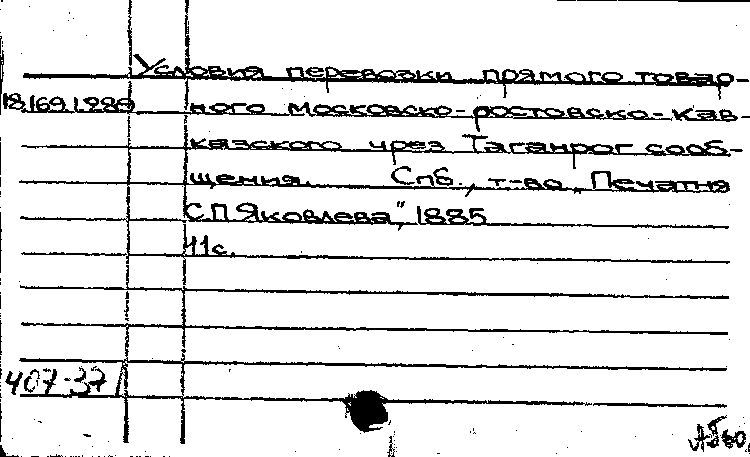 Условия перевозки прямого товар-
18.169.1.289 ного московско-ростовско-кав-
казского чрез Таганрог сооб-
щения. Спб., т-во "Печатня
С.П.Яковлева", 1885
11 с.
407-37